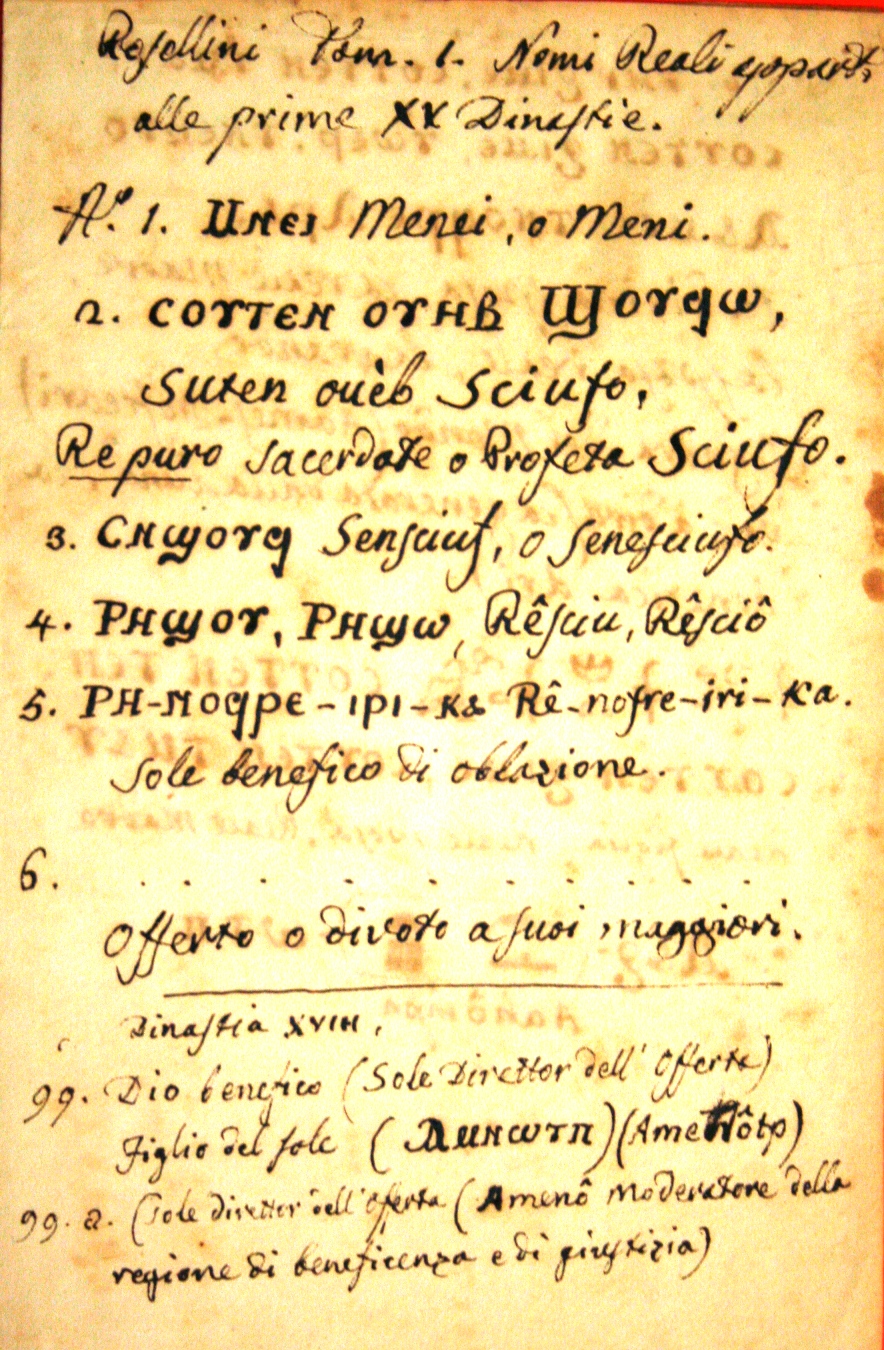 Rosellini Tom. 1. Nomi Reali
alle prime XV Dinastie.
N.º 1. Ⲙⲛⲉⲓ Menei, o Meni.
2. ⲥⲟⲩⲧⲉⲛ ⲟⲩⲏⲃ Ϣⲟⲩϥⲱ,
Suten ouèb Sciufo,
Re puro sacerdote o Profeta Sciufo.
3. Ⲥⲛϣⲟⲩϥ Senſciuf, o ſeneſciufo.
4. Ⲣⲏϣⲟⲩ, Ⲣⲏϣⲱ, Rêſciu, Rêſciô
5. Ⲣⲏ-ⲛⲟϥⲣⲉ-ⲓⲣⲓ-ⲕⲁ Rê-nofre-iri-ka.
Sole benefico di oblazione.
6. . . . . . . . . .
Offerto o divoto a ſuoi maggiori.
Dinaſtia XVIII,
99. Dio benefico (Sole Direttor dell' Offerta)
Figlio del ſole (Ⲁⲙⲛⲱⲧⲡ) (Amenôtp)
99. a. (Sole direttor dell' offerta (Amenô moderatore della
regione di beneficenza e di giuſtizia)